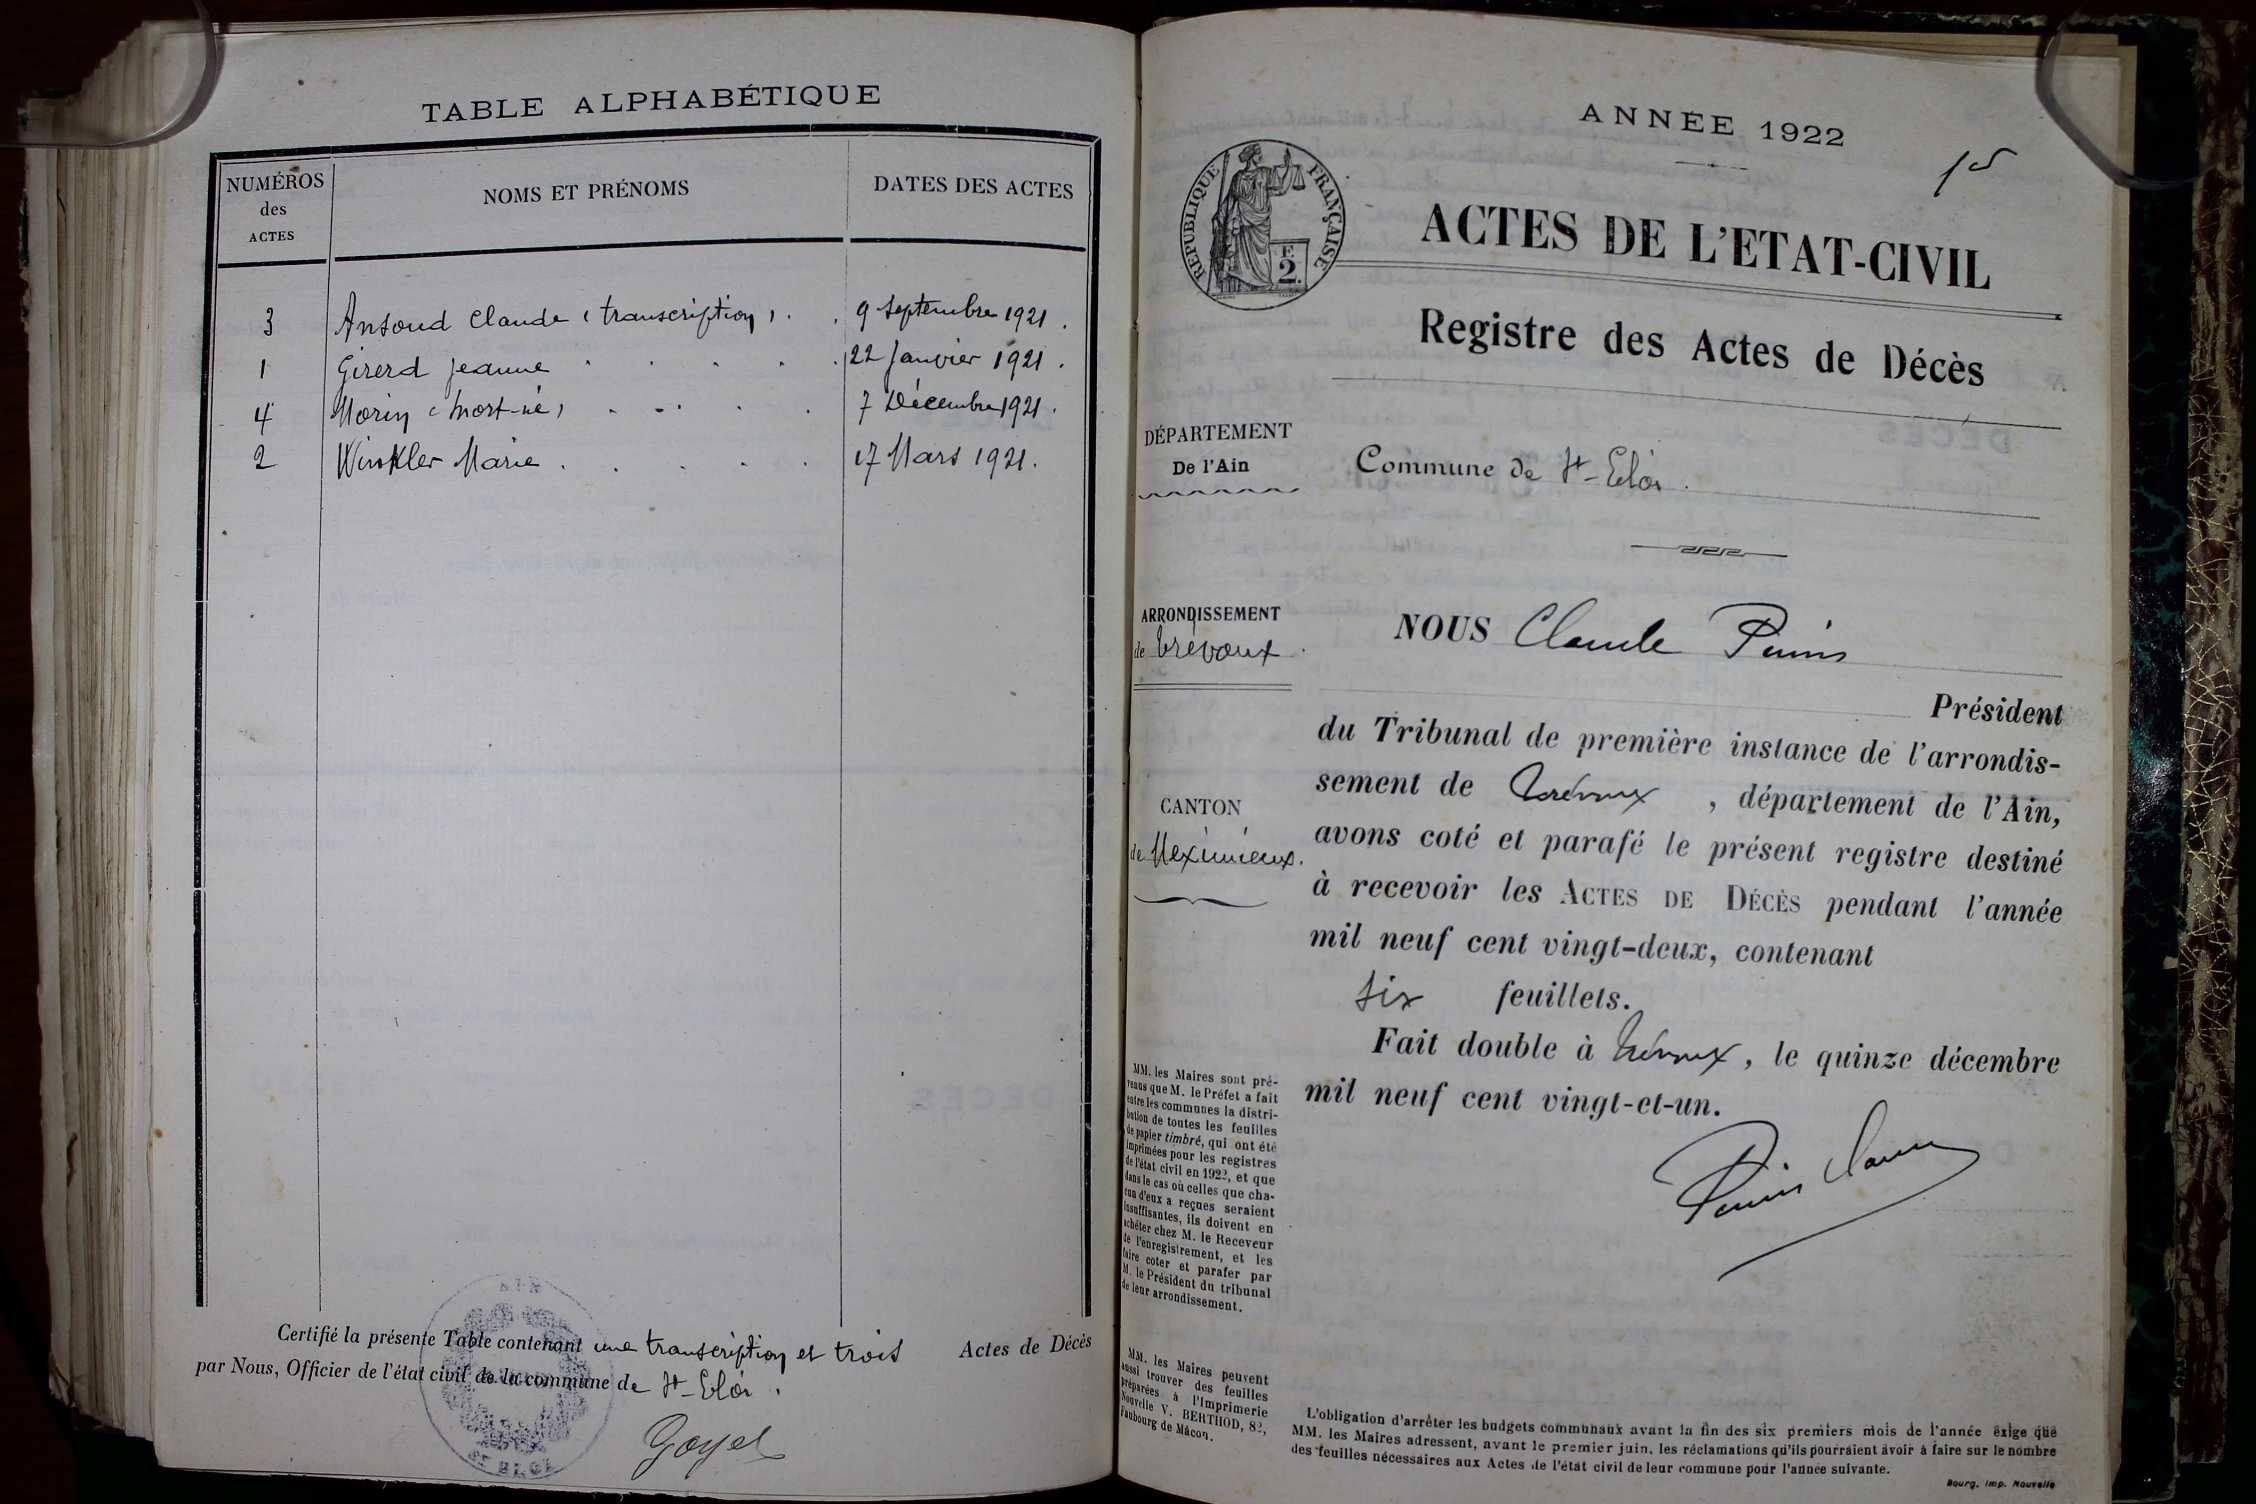 TABLE ALPHABÉTIQUE
NUMÉROS
des
ACTES
NOMS ET PRÉNOMS
DATES DES ACTES
3 Ansoud Claude (transcription) . . 9 Septembre 1921 .
1 Girerd Jeanne . . . . . 22 Janvier 1921 .
4 Morin (mort-né) . . . . 7 Décembre 1921 .
2 Winkler Marie . . . . . 17 Mars 1921 .
Certifié la présente Table contenant une transcription et trois Actes de Décès
par Nous, Officier de l'état civil de la commune de St-Eloi .
AIN
ST ELOI
Goyet
ANNÉE 1922
1er
RÉPUBLIQUE FRANÇAISE
F.
2.
ACTES DE L'ETAT-CIVIL
Registre des Actes de Décès
DÉPARTEMENT
De l'Ain
Commune de St-Eloi .
ARRONDISSEMENT
de Trévoux .
NOUS Claude
Président
du Tribunal de première instance de l'arrondis-
sement de Trévoux , département de l'Ain,
CANTON
de Meximieux.
avons coté et parafé le présent registre destiné
à recevoir les ACTES DE DÉCÈS pendant l'année
mil neuf cent vingt-deux, contenant
six feuillets.
Fait double à Trévoux , le quinze décembre
mil neuf cent vingt-et-un.
MM. les Maires sont pré-
venus que M. le Préfet a fait
entre les communes la distri-
bution de toutes les feuilles
de papier timbré, qui ont été
imprimées pour les registres
de l'état civil en 1922, et que
dans le cas où celles que cha-
cun d'eux a reçues seraient
insuffisantes, ils doivent en
acheter chez M. le Receveur
de l'enregistrement, et les
faire coter et parafer par
M. le Président du tribunal
de leur arrondissement.
MM. les Maires peuvent
aussi trouver des feuilles
préparées à l'Imprimerie
Nouvelle V. BERTHOD, 82,
Faubourg de Mâcon.
L'obligation d'arrêter les budgets communaux avant la fin des six premiers mois de l'année exige que
MM. les Maires adressent, avant le premier juin, les réclamations qu'ils pourraient avoir à faire sur le nombre
des feuilles nécessaires aux Actes de l'état civil de leur commune pour l'année suivante.
Bourg. Imp. Nouvelle